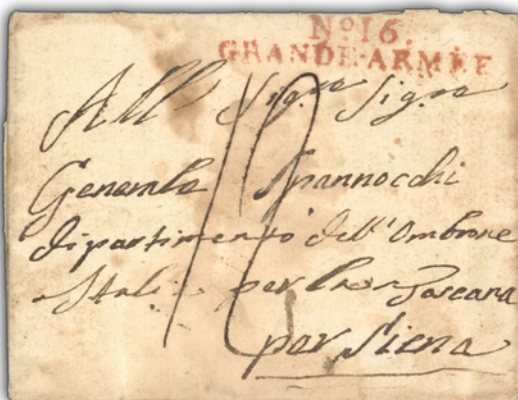 No 16.
GRANDE-ARMÉE
All Sig.ra Sig.ra
Generale Spannocchi
dipartimento dell'Ombrone
Italia per Toscana
per Siena